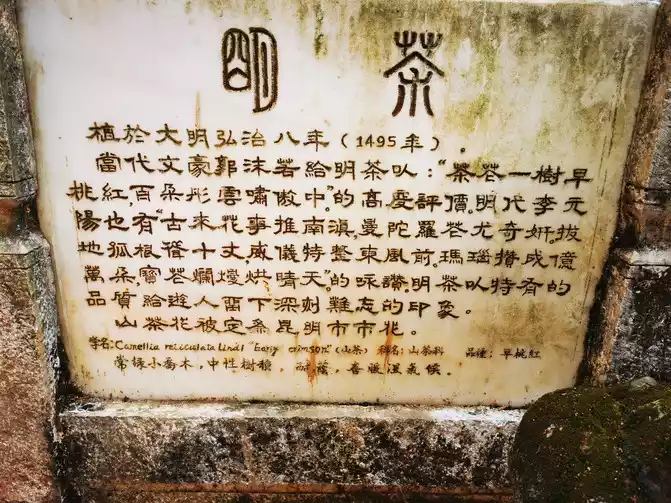 明茶
植於大明弘治八年(1495年)。
當代文豪郭沫若給明茶以:"茶花一樹早
桃紅,百朵彤雲嘯傲中"的高度評價。明代李元
陽也有"古來花事推南滇,曼陀羅花尤奇妍。拔
地孤根聳十丈,威儀特整東風前。瑪瑙攢成億
萬朵,寶花爛熳烘晴天"的咏讚。明茶以特有的
品質給遊人留下深刻難忘的印象。
山茶花被定為昆明市市花。
学名:Camellia Lindl "Eariy crimson"(山茶) 科名:山茶科 品種:早桃紅
常綠小喬木,中性樹種,耐蔭,喜暖溫氣候